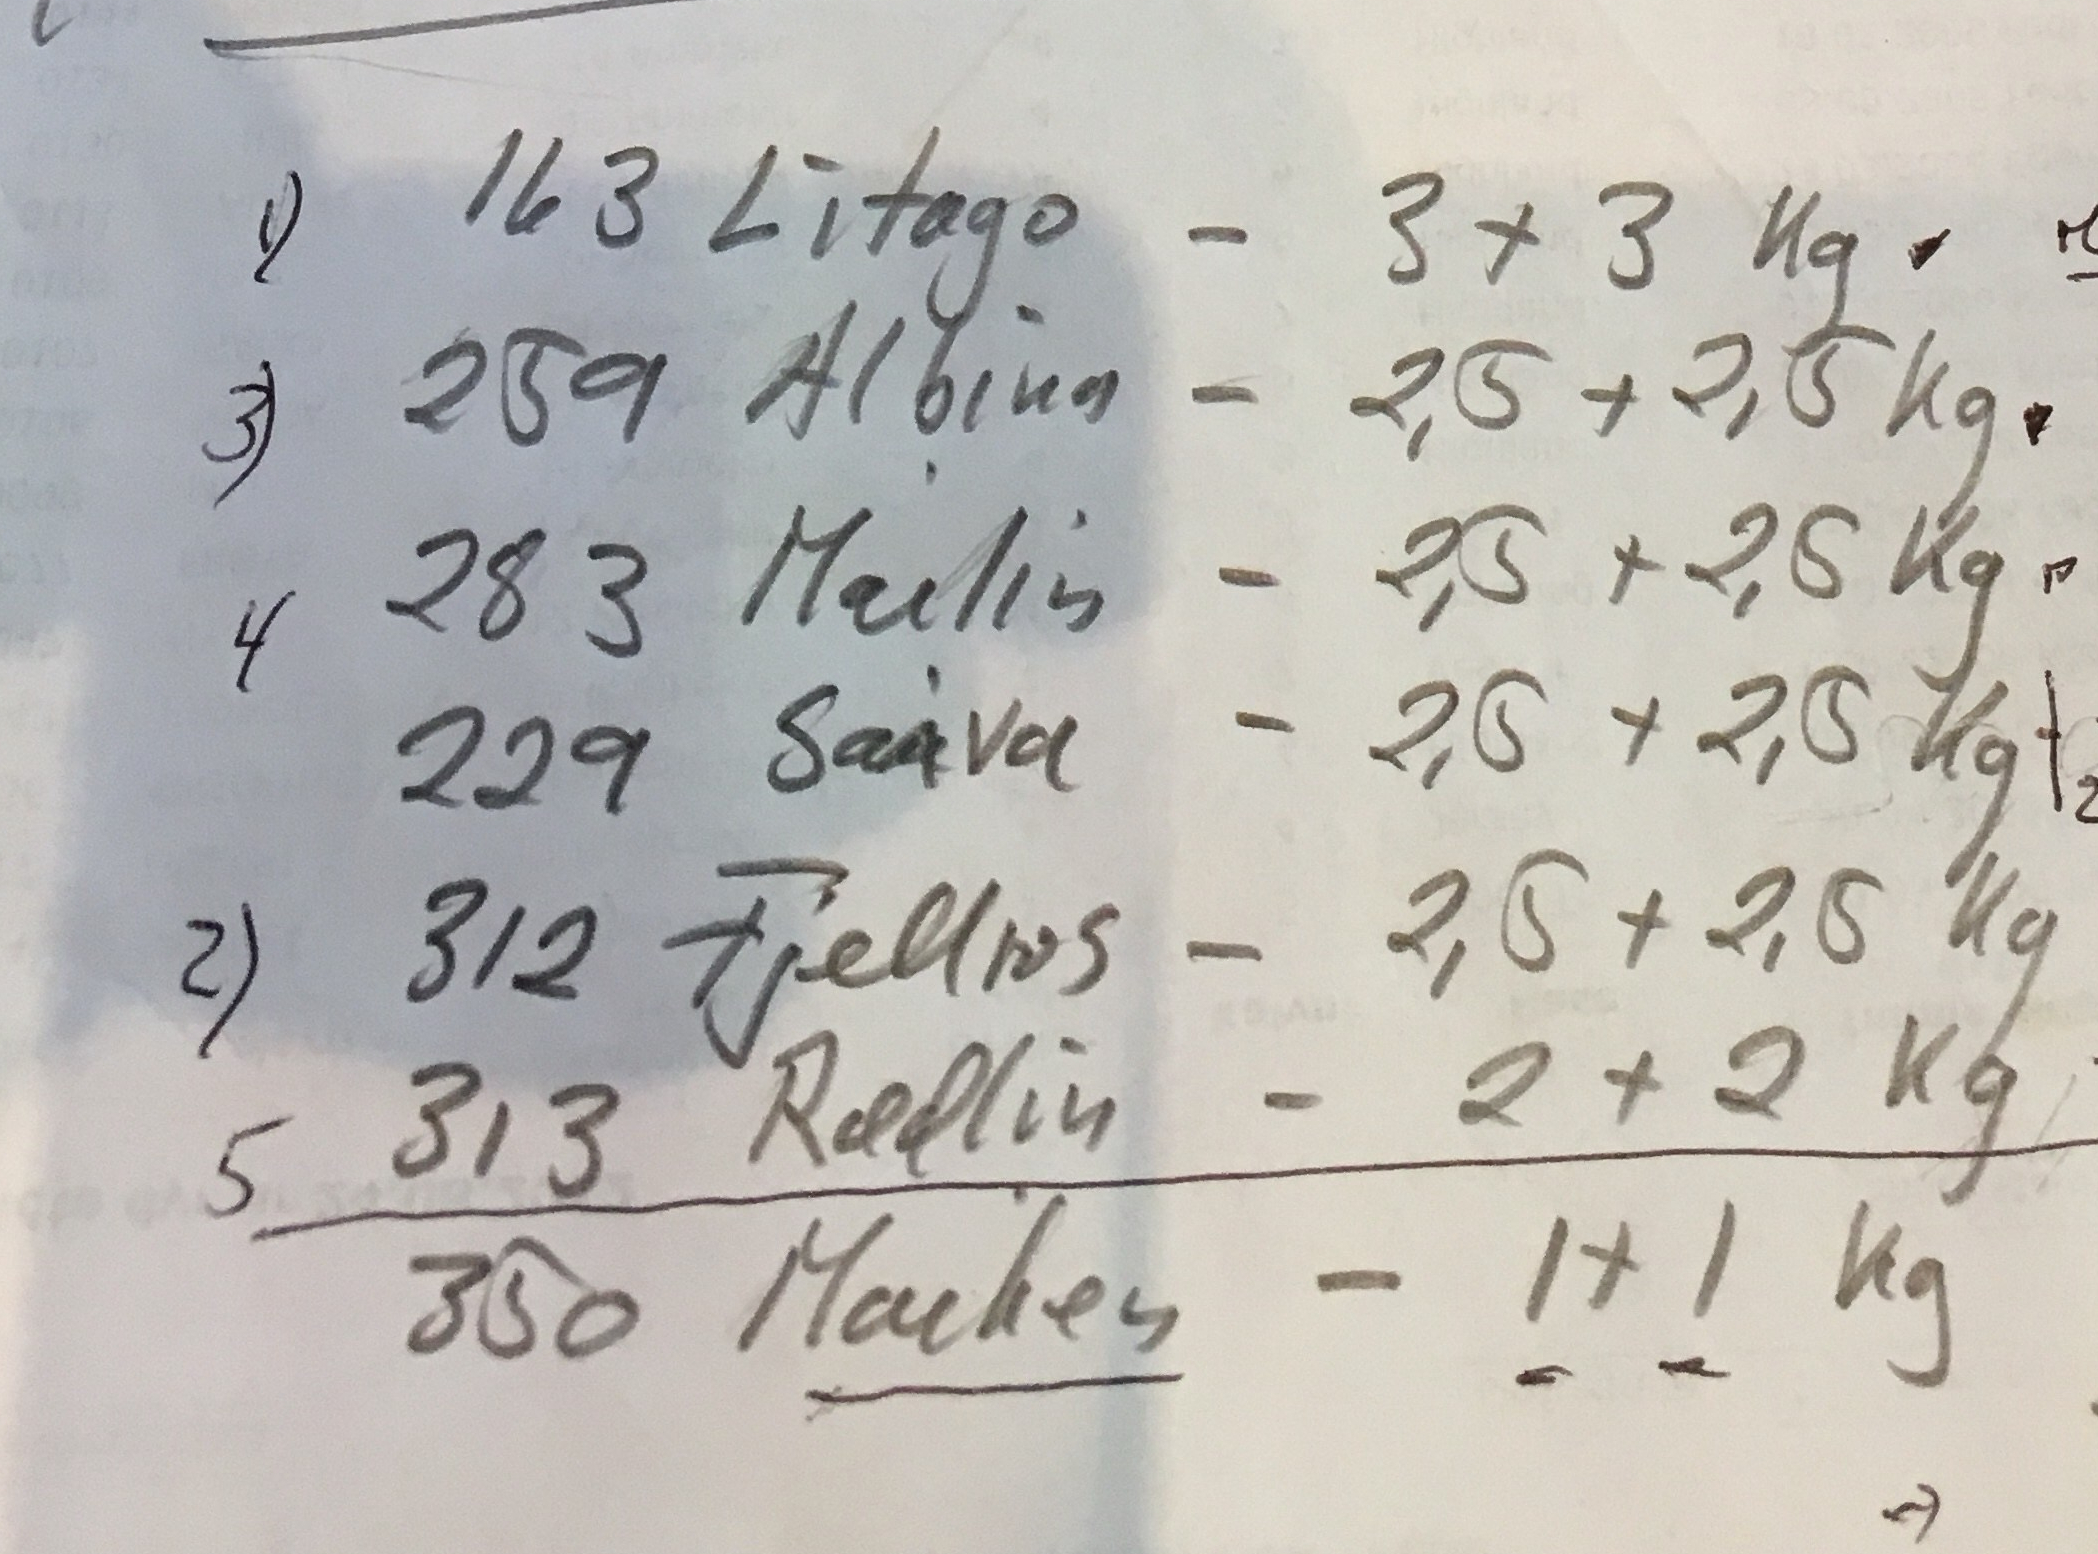 1) 163 Litago - 3 + 3 Kg.
3) 259 Albina - 2,5 + 2,5 Kg.
4 283 Mailin - 2,5 + 2,5 Kg.
229 Saiva - 2,5 + 2,5 Kg
2) 312 Fjellros - 2,5 + 2,5 Kg
5 313 - 2 + 2 Kg
350 - 1 + 1 Kg